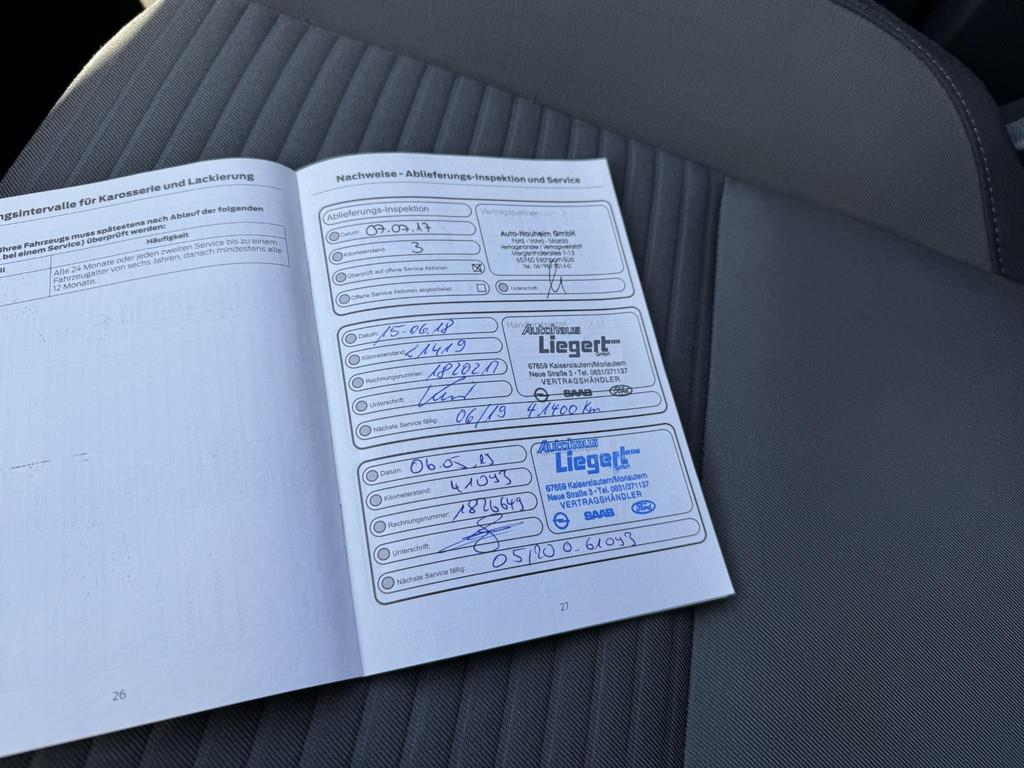 ngsintervalle für Karosserie und Lackierung
Ihres Fahrzeugs muss spätestens nach Ablauf der folgenden
bei einem Service) überprüft werden:
Häufigkeit
Alle 24 Monate oder jeden zweiten Service bis zu einem
Fahrzeugalter von sechs Jahren, danach mindestens alle
12 Monate.
26
Nachweise - Ablieferungs-Inspektion und Service
Ablieferungs-Inspektion
Datum: 07.07.17
Kilometerstand: 3
Überprüft auf offene Service Aktionen:
Offene Service Aktionen abgearbeitet:
Vertragspartner
Auto-Nauheim GmbH
Ford - Volvo - Mazda
Vertragshändler / Vertragswerkstatt
65760 Eschborn-Süd
Unterschrift:
Datum: 15.06.18
Kilometerstand: 21419
Rechnungsnummer: 1820217
Unterschrift:
Nächste Service fällig: 06/19 41400 Km
Autohaus
Liegert
GmbH
67659 Kaiserslautern/Morlautern
Neue Straße 3 • Tel. 0631/371137
VERTRAGSHÄNDLER
SAAB
Ford
Datum: 06.05.19
Kilometerstand: 41093
Rechnungsnummer: 1826649
Unterschrift:
Nächste Service fällig: 05/20 o. 61093
Autohaus
Liegert
GmbH
67659 Kaiserslautern/Morlautern
Neue Straße 3 • Tel. 0631/371137
VERTRAGSHÄNDLER
SAAB
Ford
27